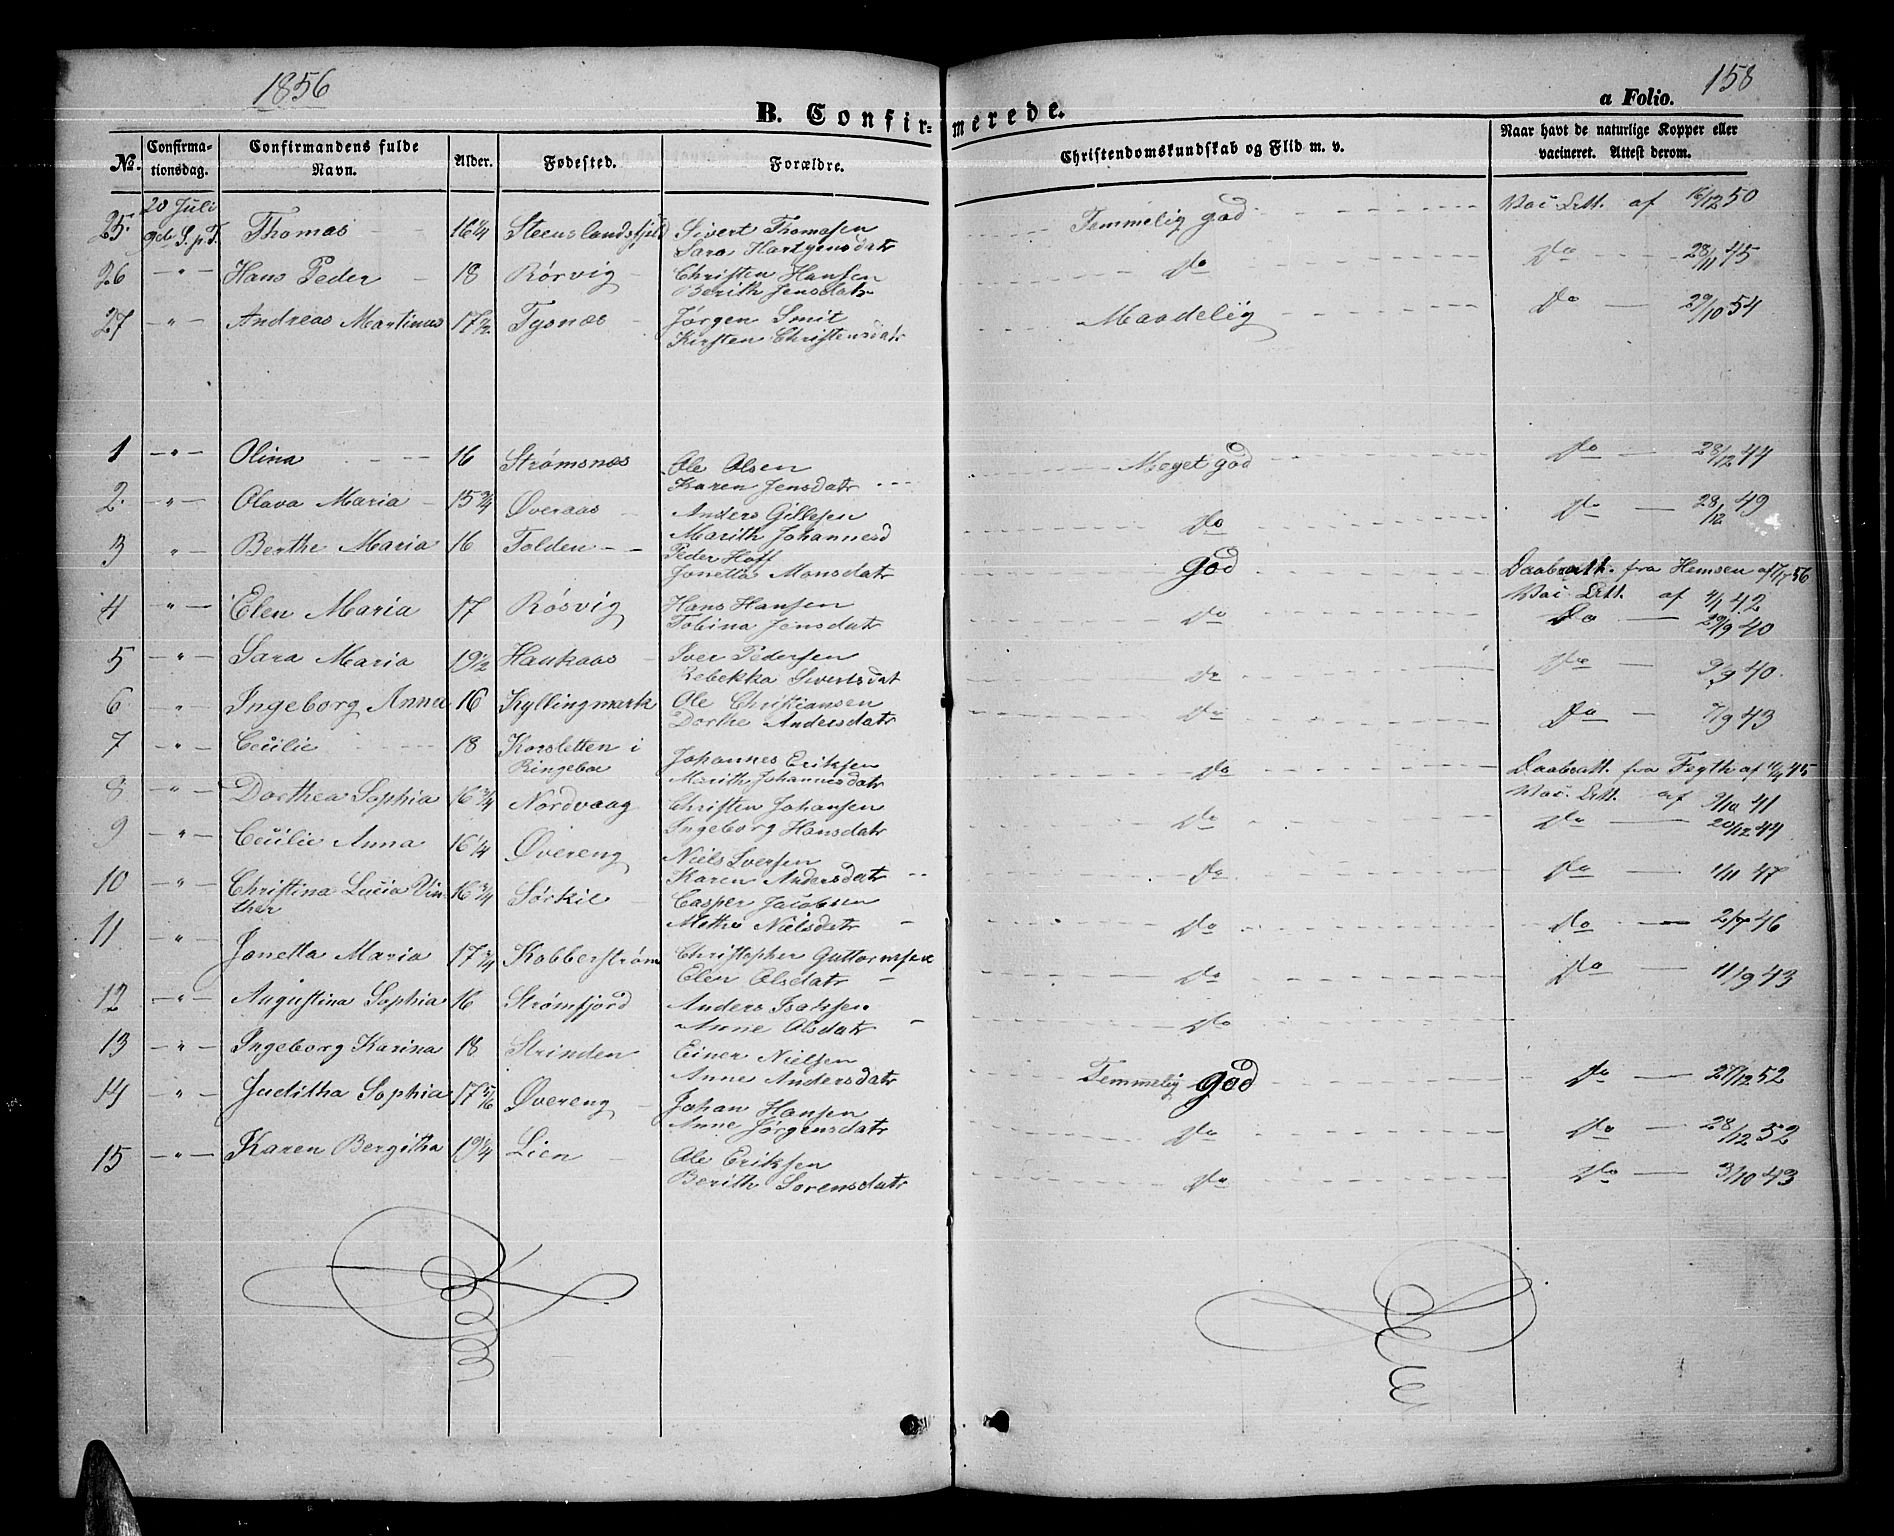 1856
158
B. Confirmerede.
a Folio.
No.
Confirmationsdag.
Confirmandens fulde Navn.
Alder.
Fødested.
Forældre.
Christendomskundskab og Flid m. v.
Naar havt de naturlige Kopper eller vacineret. Attest derom.
20 Juli
25 9de S. p. T. Thomas 16 1/4 Steenslandsfjeld Sivert Thomasen Temmelig god Vac. Att. af 16/12 50
Sara Hartgensdatr
26 " Hans Peder 18 Rørvig Christen Hansen Do Do 28/11 45
Berith Jensdatr
27 " Andreas Martinus 17 1/2 Tysnæs Jørgen Smit Maadelig Do 29/10 54
Kirsten Christensdatr
1 " Olina 16 Strømsnæs Ole Olsen Meget god Do 28/12 44
Karen Jensdatr
2 " Olava Maria 15 3/4 Øveraas Anders Gillesen Do Do 28/12 49
Marith Johannesd
3 " Berthe Maria 16 Folden Peder Hoff god Daabsatt. fra Hemsen af 7/7 56
Jonetta Monsdatr Vac. Att. af 4/1 42
4 " Elen Maria 17 Røsvig Hans Hansen Do Do 29/9 40
Tobina Jensdatr
5 " Sara Maria 19 1/2 Haukaas Iver Pedersen Do Do 9/9 40
Rebekka Sivertsdat
6 " Ingeborg Anna 16 Kyllingmark Ole Christiansen Do Do 7/9 43
Dorthe Andersdatr
7 " Cecilie 18 Korsletten i Johannes Eriksen Do Daabsatt. fra Fegth af 10/4 45
Ringeboe Marith Johannesdatr Vac. Att. af 9/10 41
8 " Dorthea Sophia 16 3/4 Nordvaag Christen Johansen Do Do 20/12 44
Ingeborg Hansdatr
9 " Cecilie Anna 16 1/4 Øvereng Niels Iversen Do Do 1/11 47
Karen Andersdatr
10 " Christina Lucia Vin 16 3/4 Sørkil Casper Jacobsen Do Do 2/7 46
ther Methe Nielsdatr
11 " Jonetta Maria 17 3/4 Kobberstrøm Christopher Guttormsen Do Do 11/9 43
Elen Olsdatr
12 " Augustina Sophia 16 Strømfjord Anders Isaksen Do
Anne Olsdatr
13 " Ingeborg Karina 18 Strinden Einer Nielsen Temmelig god Do 27/12 52
Anne Andersdatr
14 " Juditha Sophia 17 5/6 Øvereng Johan Hansen Do Do 28/12 52
Anne Jørgensdatr
15 " Karen Bergitha 19 1/4 Lien Ole Eriksen Do Do 3/10 43
Berith Sorensdatr